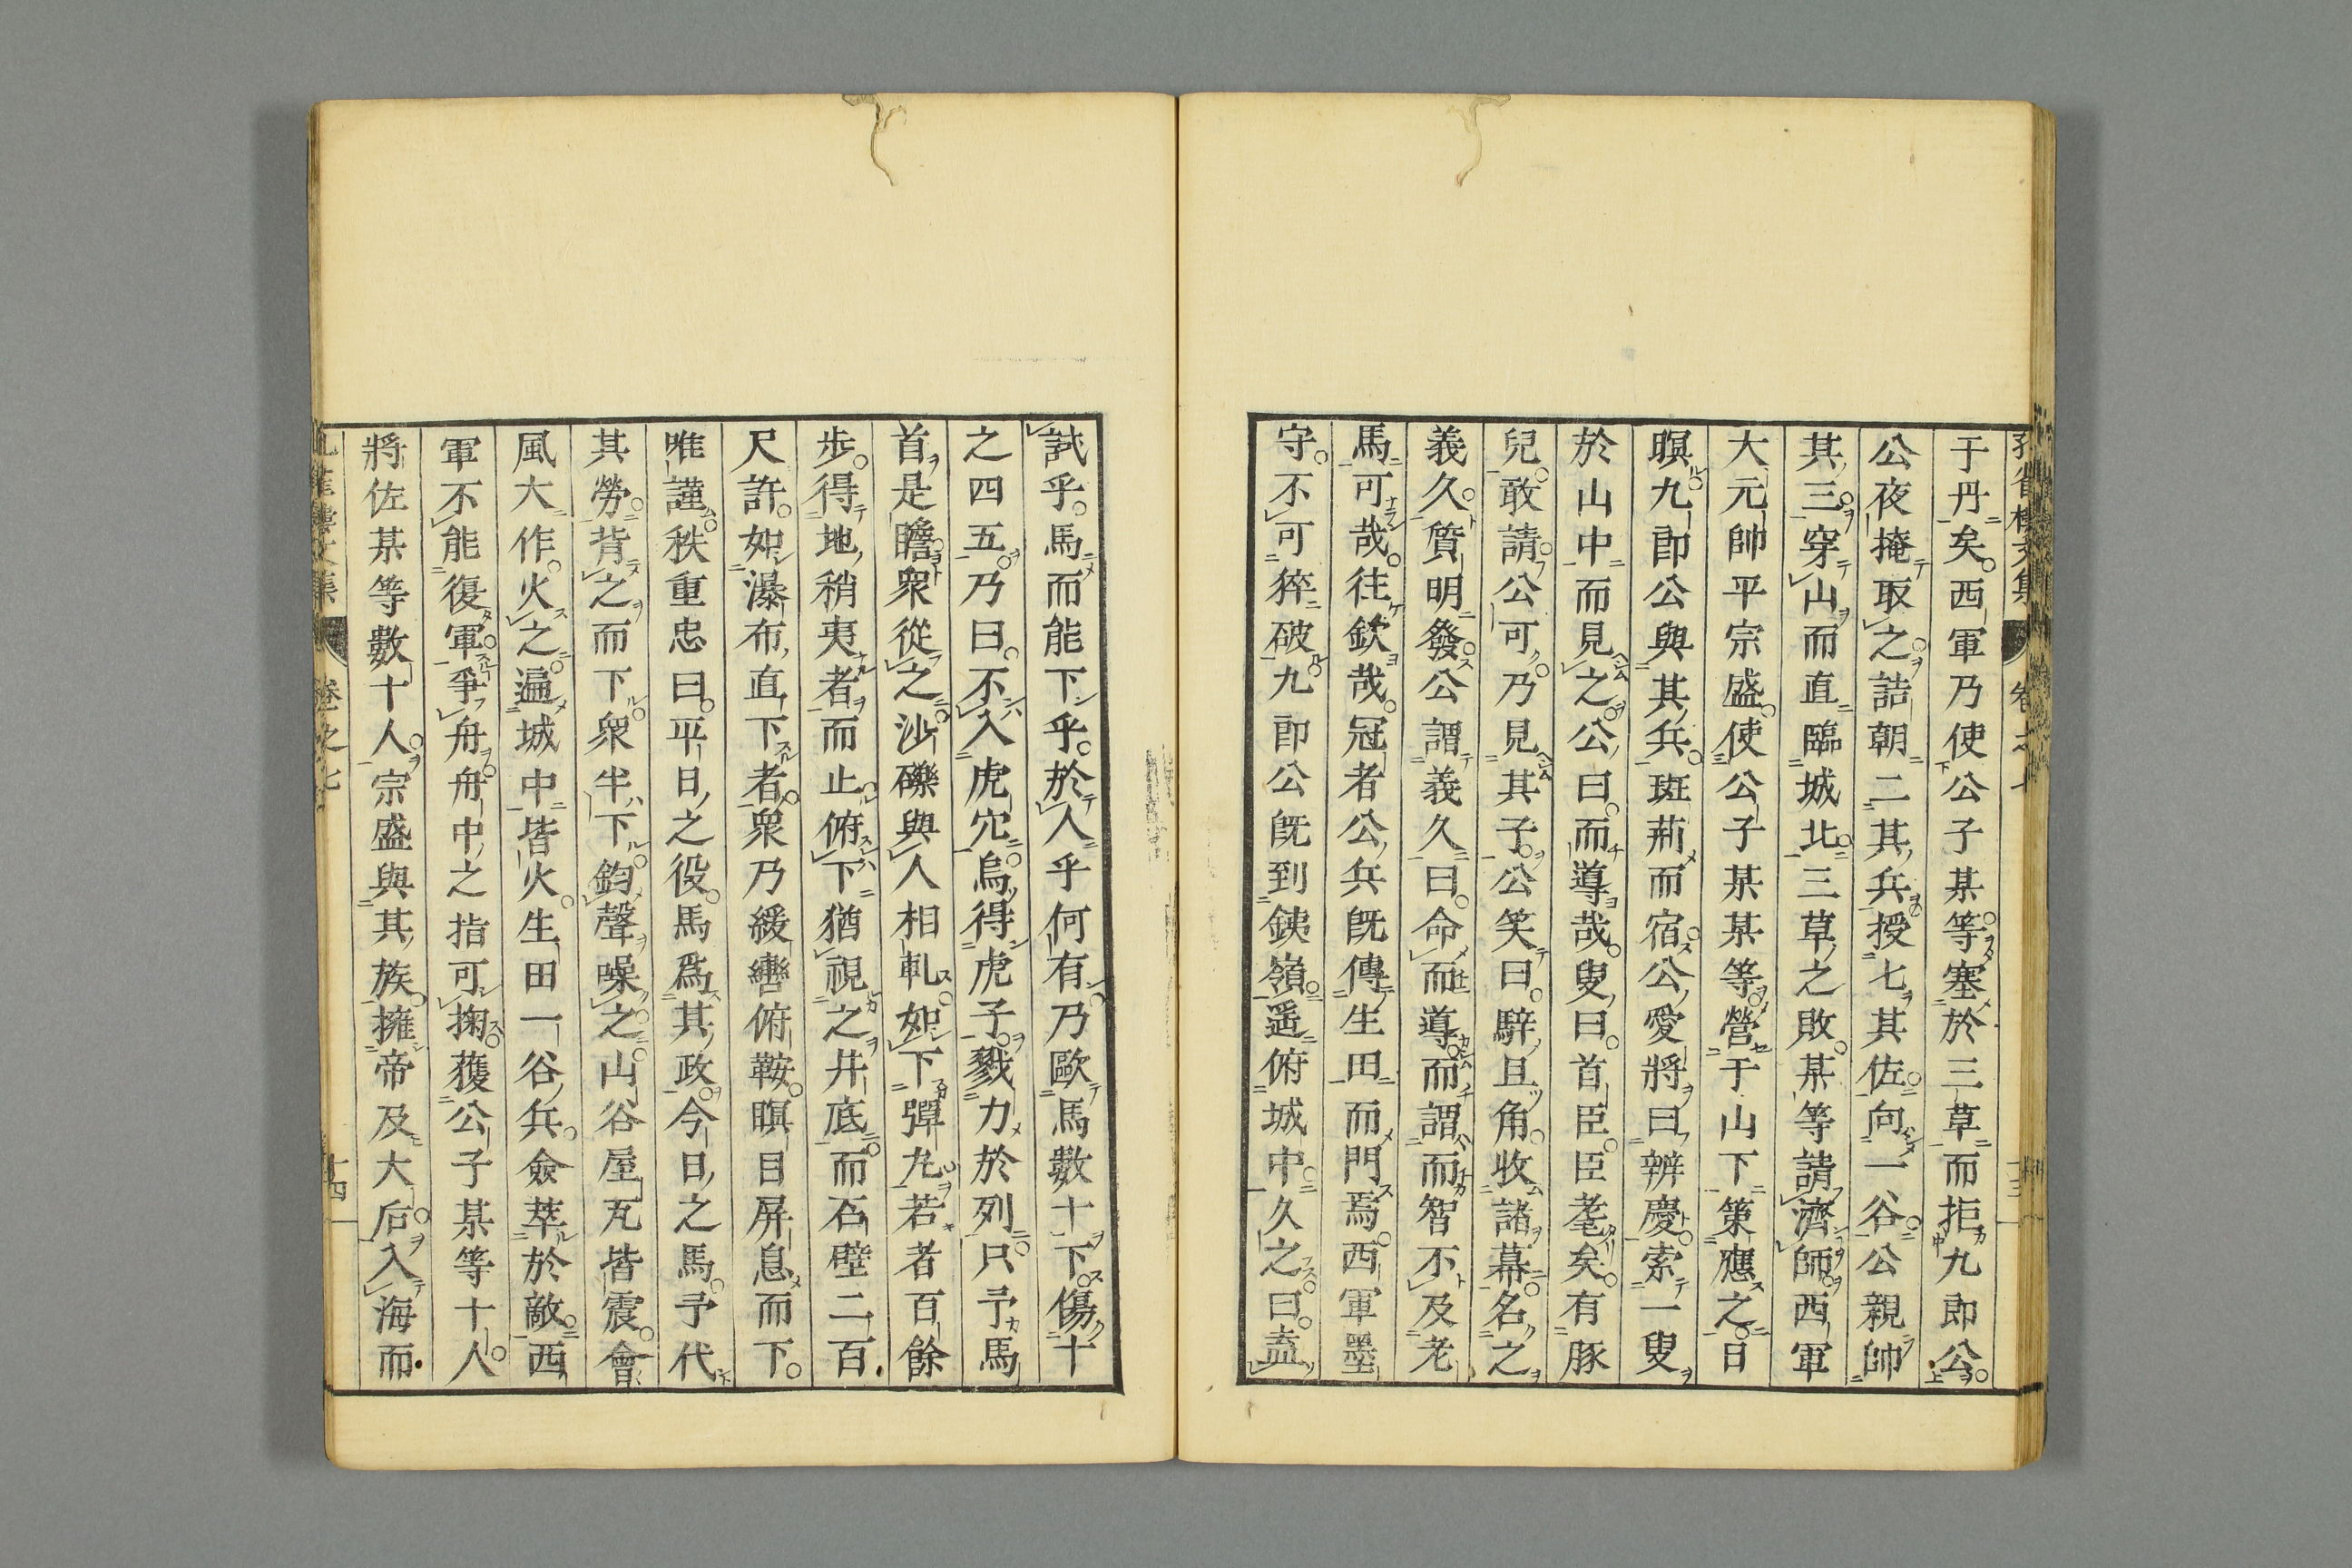 于丹矣西軍乃使公子某等塞於三草而拒九郎公
公夜掩取之詰朝二其兵授七其佐向一谷公親帥
其三穿山而直臨城北三草之敗某等請濟師西軍
大元帥平宗盛使公子某某等營于山下策應之日
暝九郎公與其兵斑荊而宿公愛將曰辨慶索一叟
於山中而見之公曰而導哉叟曰首臣臣耄矣有豚
兒敢請公可乃見其子公笑曰騂且角收諸幕名之
義久質明發公謂義久曰命而導而謂而智不及老
馬可哉往欽哉冠者公兵既傳生田而門焉西軍墨
守不可猝破九郎公既到鉄嶺遥俯城中久之曰盍
試乎馬而能下乎於人乎何有乃歐馬數十下傷十
之四五乃曰不入虎穴烏得虎子戮力於列只予馬
首是瞻衆從之沙礫與人相軋如下彈丸若者百餘
步得地稍夷者而止俯下猶視之井底而石壁二百
尺許如瀑布直下者衆乃緩轡俯鞍暝目屏息而下
唯謹秩重忠曰平日之役馬爲其政今日之馬予代
其勞背之而下衆半下鈞聲噪之山谷屋瓦皆震會
風大作火之遍城中皆火生田一谷兵僉萃於敵西
軍不能復軍爭舟舟中之指可掬獲公子某等十人
將佐某等數十人宗盛與其族擁帝及大后入海而
卷之七
十四